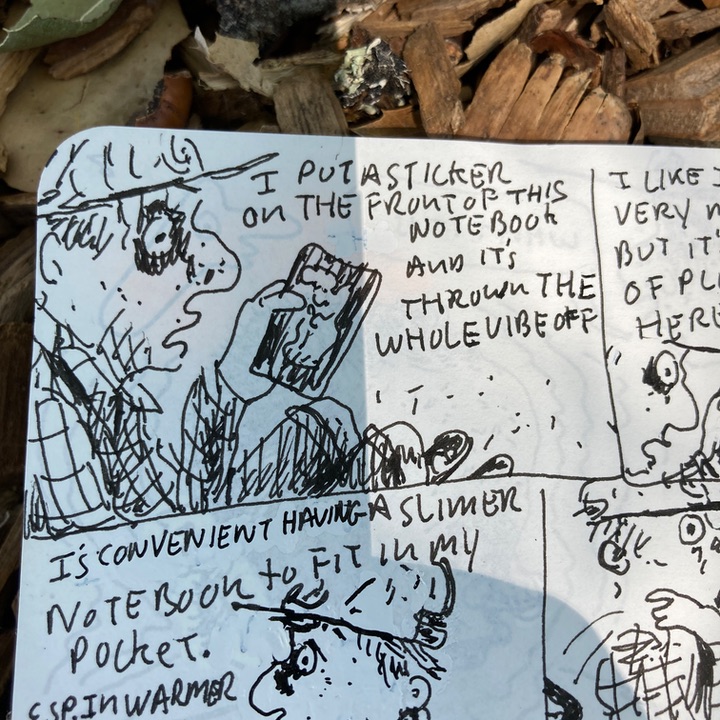 I PUT A STICKER
ON THE FRONT OF THIS
NOTEBOOK
AND IT'S
THROWN THE
WHOLE VIBE OFF
I LIKE
VERY
BUT IT'
OF PL
HERE
I'S CONVENIENT HAVING A SLIMER
NOTEBOOK to FIT IN MY
POCKET.
ESP. IN WARMER